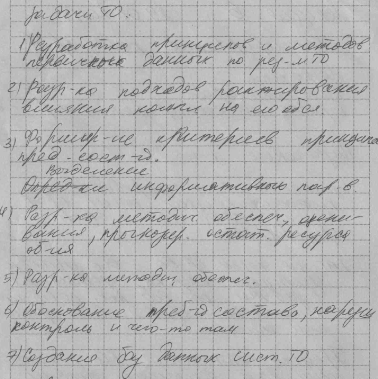 Задачи ТО:
1) Разработка принципов и методов
первичных данных по рез-м ТО
2) Разр-ка подходов
влияния на его обсл.
3) Формир-ие критериев принципа
пред. сост-ия.
Выделение
информативных пар-в.
4) Разр-ка методич. обеспеч., оцени-
вания, прогнозир. остат. ресурса
об-ия
5) Разр-ка методич. обеспеч.
6) Обоснование треб-й состава,
контроль и что-то там
7) Создание баз данных сист. ТО